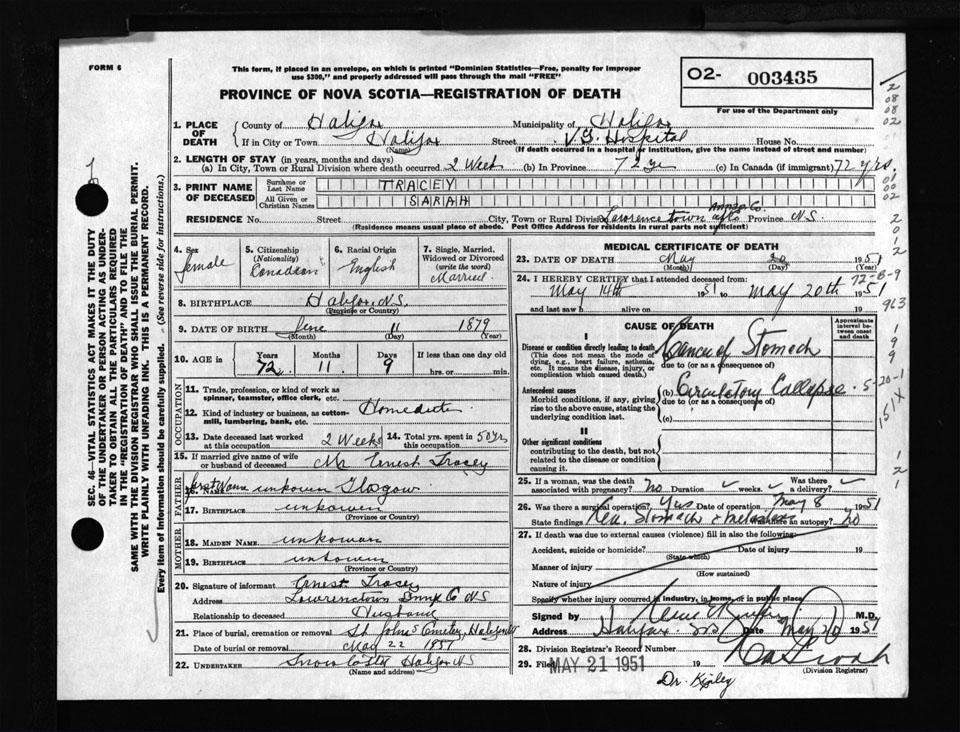 FORM 6
This form, if placed in an envelope, on which is printed "Dominion Statistics—Free, penalty for improper
use $300," and properly addressed will pass through the mail "FREE"
PROVINCE OF NOVA SCOTIA—REGISTRATION OF DEATH
O2- 003435
For use of the Department only
1. PLACE OF DEATH
County of Halifax Municipality of Halifax
If in City or Town Halifax Street V.G. Hospital House No.
(Name) (If death occurred in a hospital or institution, give the name instead of street and number)
2. LENGTH OF STAY (in years, months and days)
(a) In City, Town or Rural Division where death occurred 2 Week (b) In Province 72 yr (c) In Canada (if immigrant) 72 yrs.
3. PRINT NAME OF DECEASED
Surname or Last Name TRACEY
All Given or Christian Names SARAH
Annap. Co.
RESIDENCE No. Street City, Town or Rural Division Lawrence town Province N.S.
(Residence means usual place of abode. Post Office Address for residents in rural parts not sufficient)
4. Sex female
5. Citizenship (Nationality) Canadian
6. Racial Origin English
7. Single, Married, Widowed or Divorced (write the word) Married
8. BIRTHPLACE Halifax, N.S.
(Province or Country)
9. DATE OF BIRTH June 11 1879
(Month) (Day) (Year)
10. AGE in Years 72 Months 11 Days 9 If less than one day old
hrs. or min.
OCCUPATION
11. Trade, profession, or kind of work as
spinner, teamster, office clerk, etc.
12. Kind of industry or business, as cotton-
mill, lumbering, bank, etc. Homeduties
13. Date deceased last worked at this occupation 2 Weeks 14. Total yrs. spent in this occupation 50 Yrs
15. If married give name of wife
or husband of deceased Mr Ernest Tracey
FATHER
16. Name first Name unkown Glasgow
17. BIRTHPLACE unkown
(Province or Country)
MOTHER
18. MAIDEN NAME unkowan
19. BIRTHPLACE unkowen
(Province or Country)
20. Signature of informant Ernest Tracey
Address Lawrencetown Co NS
Relationship to deceased Husband
21. Place of burial, cremation or removal St John's Cemetery, Halifax
Date of burial or removal May 22 1951
22. UNDERTAKER Snow Halifax NS
(Name and address)
MEDICAL CERTIFICATE OF DEATH
23. DATE OF DEATH May 20 1951
(Month) (Day) (Year)
24. I HEREBY CERTIFY that I attended deceased from:
May 14th 1951 to May 20th 1951
and last saw h alive on 19
CAUSE OF DEATH
Approximate interval between onset and death
I
Disease or condition directly leading to death
(This does not mean the mode of
dying, e.g., heart failure, asthenia,
etc. It means the disease, injury, or
complication which caused death.)
(a) Cancer of Stomach
due to (or as a consequence of)
Antecedent causes
Morbid conditions, if any, giving
rise to the above cause, stating the
underlying condition last.
(b) Circulatory Collapse
due to (or as a consequence of)
(c)
II
Other significant conditions
contributing to the death, but not
related to the disease or condition
causing it.
25. If a woman, was the death associated with pregnancy? no Duration weeks. Was there a delivery?
26. Was there a surgical operation? Yes Date of operation May 8 1951
State findings Ca. Stomach Was there an autopsy? No
27. If death was due to external causes (violence) fill in also the following:
Accident, suicide or homicide? Date of injury 19
(State which)
Manner of injury
(How sustained)
Nature of injury
Specify whether injury occurred in industry, in home, or in public place
Signed by M.D.
Address Halifax Date May 20 1951
28. Division Registrar's Record Number
29. Filed MAY 21 1951 19
(Division Registrar)
Dr. Kipley
SEC. 46—VITAL STATISTICS ACT MAKES IT THE DUTY
OF THE UNDERTAKER OR PERSON ACTING AS UNDER-
TAKER TO OBTAIN ALL THE PARTICULARS REQUIRED
IN THE "REGISTRATION OF DEATH" AND TO FILE THE
SAME WITH THE DIVISION REGISTRAR WHO SHALL ISSUE THE BURIAL PERMIT.
WRITE PLAINLY WITH UNFADING INK. THIS IS A PERMANENT RECORD.
Every item of information should be carefully supplied. (See reverse side for instructions.)
2
08
08
02
01
00
02
2
0
1
2
72-8-9
963
1
9
9
5-20-1
151X
1
2
1